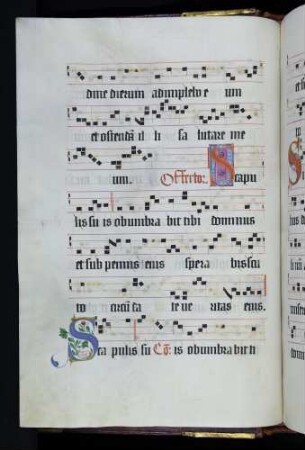 dine dierum adimplebo e um
et ostendā il li sa lutare me
um. Offertor. Scapu
lis su is obumbra bit tibi dominus
et sub pennis eius spera bis scu
to circū da te ve ritas eius.
Sca pulis su Cō: is obumbra bit ti